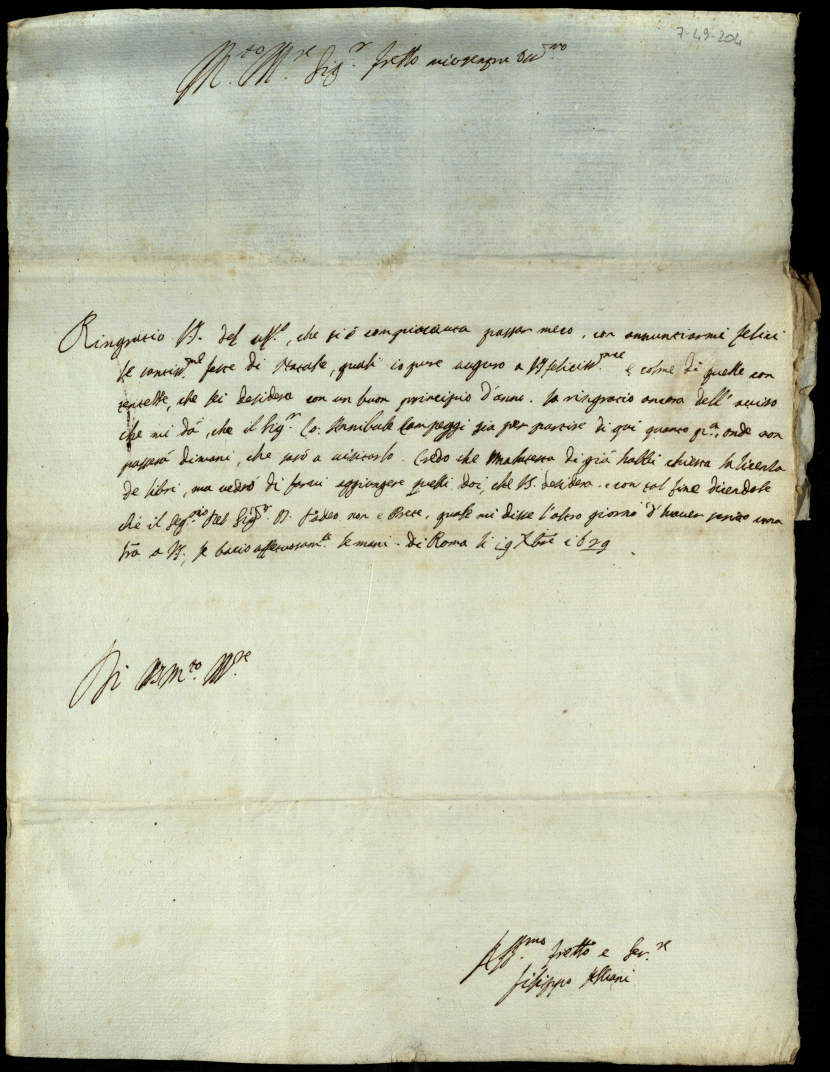 7-49-204
M.to M.re Sig.r fr.ello mio sempre
Ringratio V.S. del uff.o, che si è compiaciuta passar meco, con annuntiarmi felici
le feste di Natale, quali io pure auguro a V.S. feliciss.me e colme di quelle con
tentezze, che lei desidera con un buon principio d'anno. La ringratio ancora dell'aviso
che mi dà, che il Sig.r Co. Annibale Campeggi sia per partire di qui quanto p.a, onde non
passarà dimani, che sarò a visitarlo. Credo che di già habbi chiesta la licenza
de libri, ma vedrò di farvi aggiungere quelli doi, che V.S. desidera. e con tal fine dicendole
che il Seg.rio del Sig.r D. Tadeo non è, quale mi disse l'altro giorno d'haver scritto una
l'ra a V.S., le bacio affettuosam.te le mani. di Roma li 19 Xbre 1629
Di V.S. M.to M.re
Aff.mo fr.ello e Ser.re
Filippo